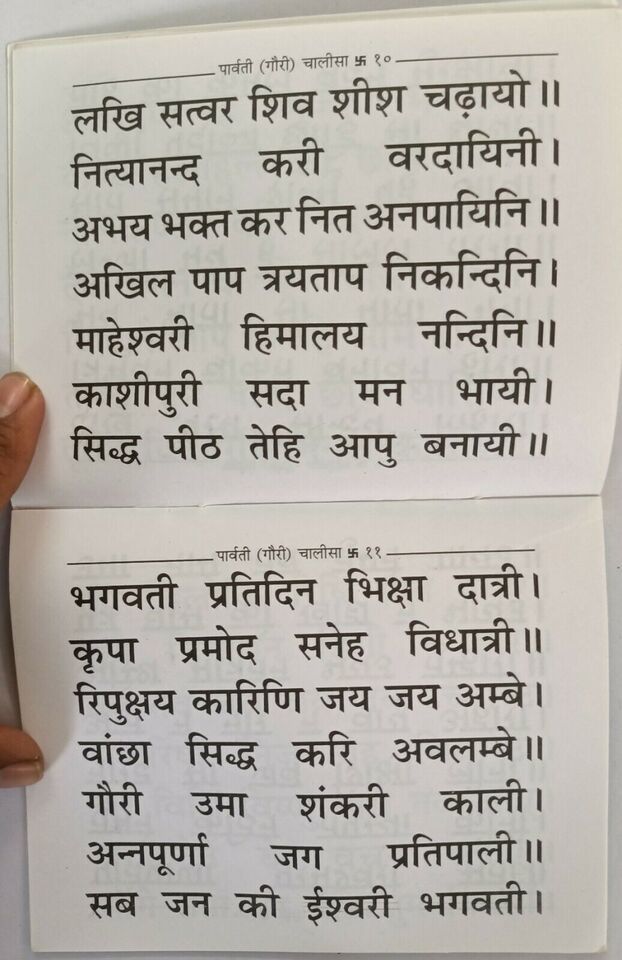 पार्वती (गौरी) चालीसा 卐 १०
लखि सत्वर शिव शीश चढ़ायो॥
नित्यानन्द करी वरदायिनी।
अभय भक्त कर नित अनपायिनि॥
अखिल पाप त्रयताप निकन्दिनि।
माहेश्वरी हिमालय नन्दिनि॥
काशीपुरी सदा मन भायी।
सिद्ध पीठ तेहि आपु बनायी॥
पार्वती (गौरी) चालीसा 卐 ११
भगवती प्रतिदिन भिक्षा दात्री।
कृपा प्रमोद सनेह विधात्री॥
रिपुक्षय कारिणि जय जय अम्बे।
वांछा सिद्ध करि अवलम्बे॥
गौरी उमा शंकरी काली।
अन्नपूर्णा जग प्रतिपाली॥
सब जन की ईश्वरी भगवती।